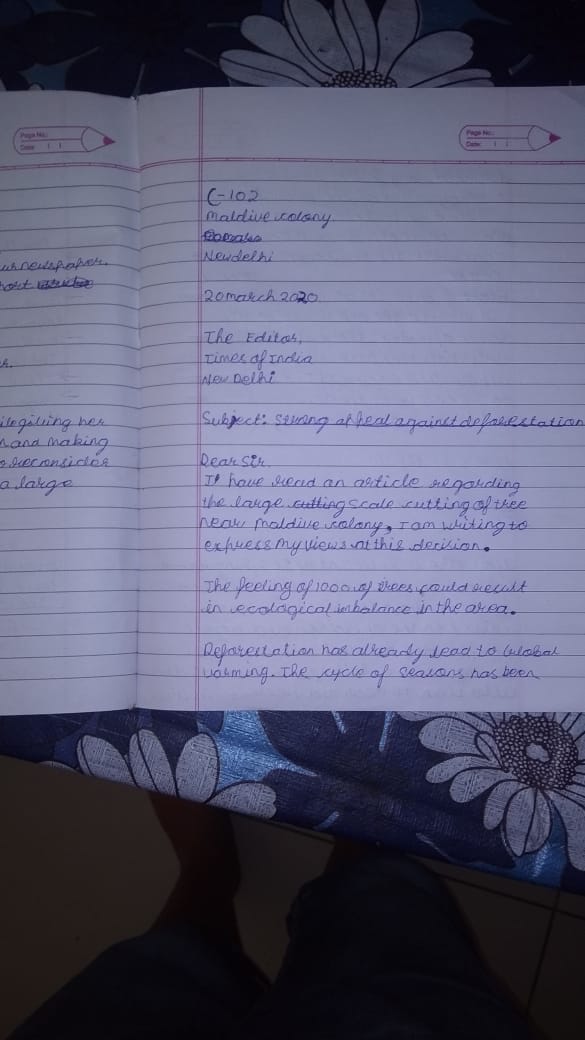 Page No.:
Date:
us newspaper.
hort
r.
ile giving her
n and making
o reconsider
a large
Page No.:
Date:
C-102
Maldive colony
Newdelhi
20 march 2020
The Editor,
Times of India
New Delhi
Subject: Strong appeal against deforestation
Dear Sir,
I have read an article regarding
the large cutting scale cutting of tree
near maldive colony, I am writing to
express my views at this decision.
The feeling of 1000 of trees could result
in ecological imbalance in the area.
Deforestation has already lead to Global
warming. The cycle of seasons has been